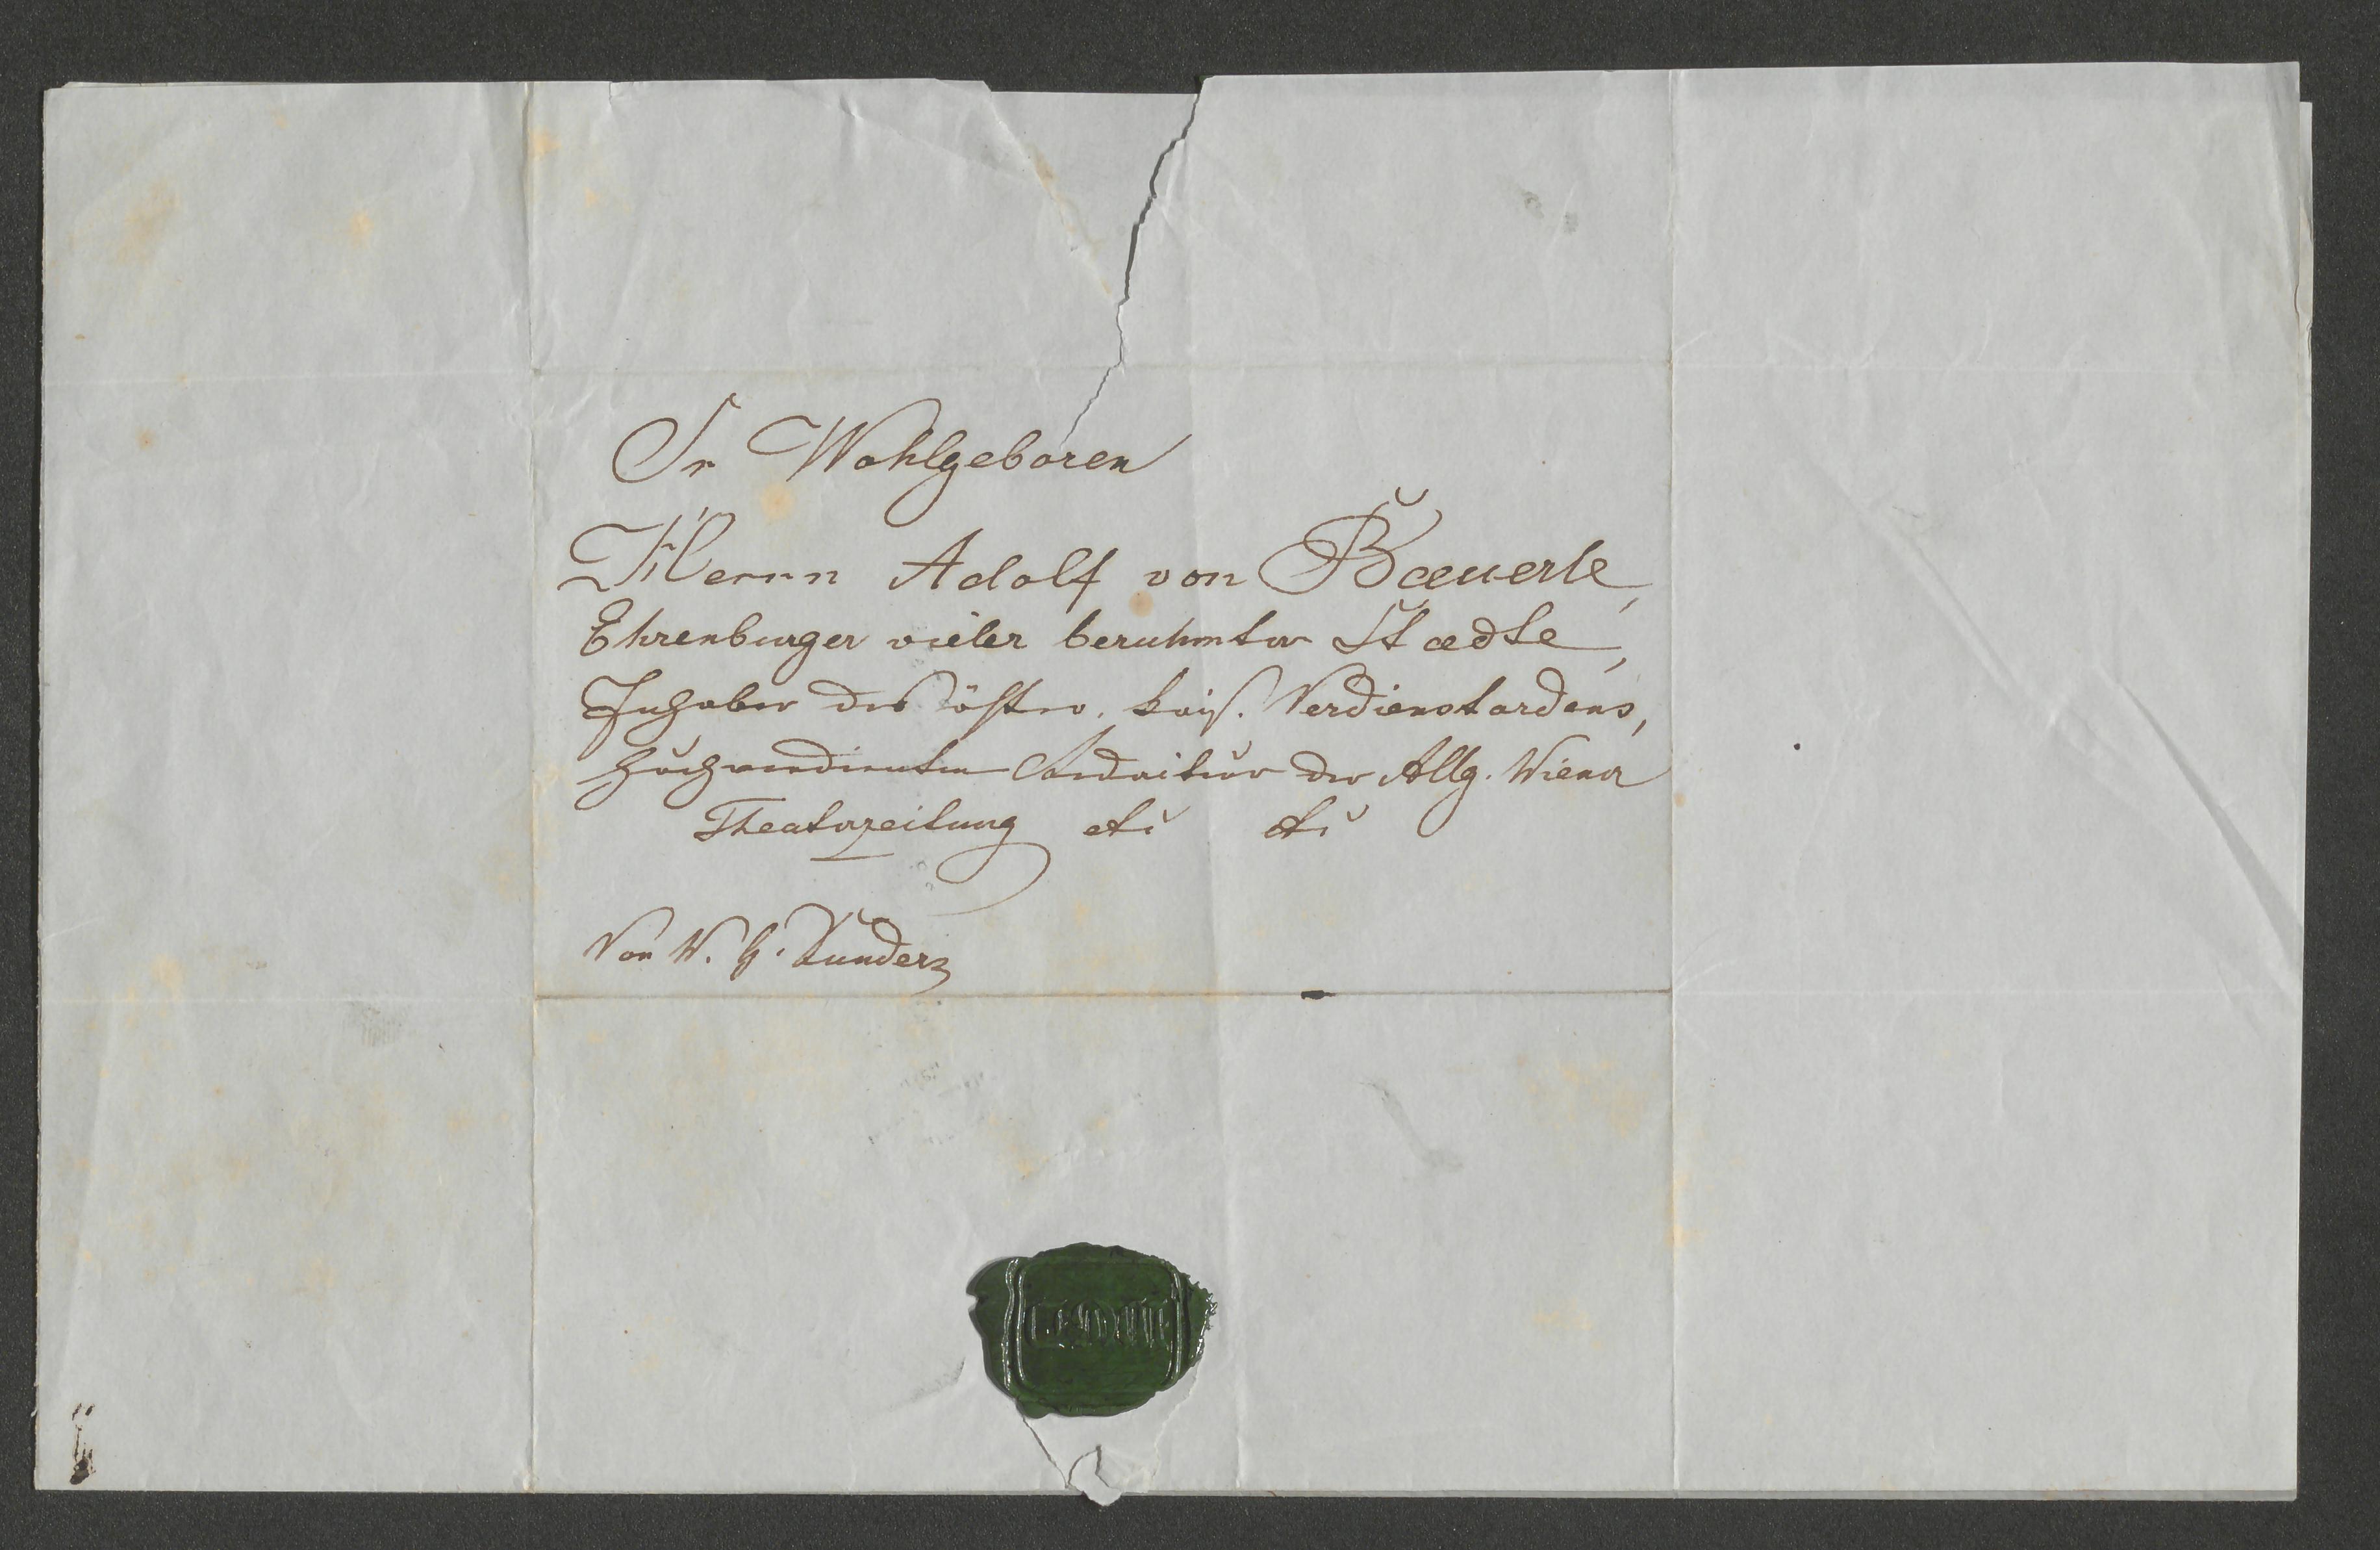 Sr Wohlgeboren
Herrn Adolf von Baeuerle,
Ehrenburger vieler beruhmter Staedte,
Inhaber des östr. kais. Verdienstordens,
hochverdienten Redakteur der Allg. Wiener
Theaterzeitung etc etc
Von W. H.